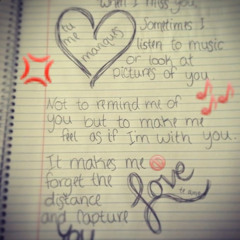 When I miss you
tu me manques
Sometimes I
listen to music
or look at
pictures of you
Not to remind me of
you but to make me
feel as if I'm with you.
It makes me
forget the
distance
and capture
love
You